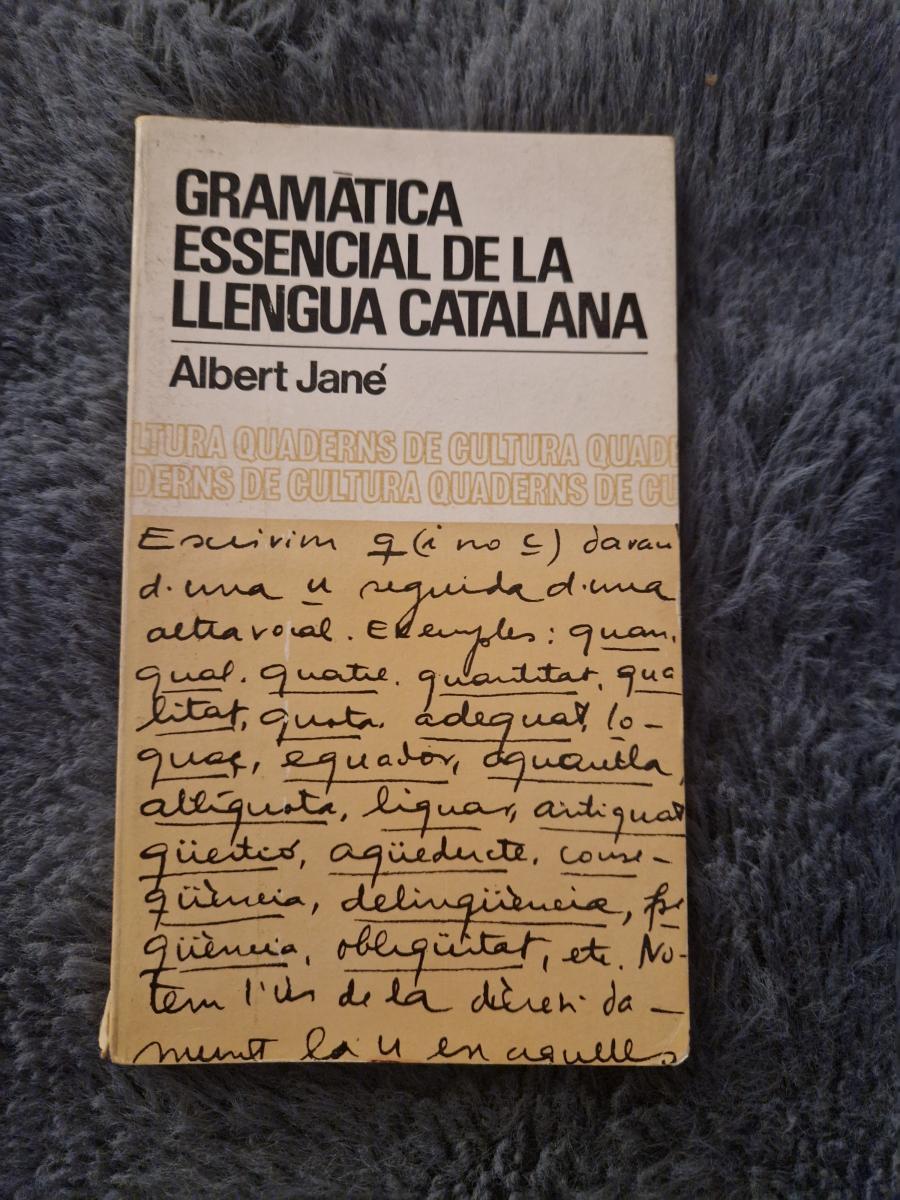 GRAMÀTICA
ESSENCIAL DE LA
LLENGUA CATALANA
Albert Jané
LTURA QUADERNS DE CULTURA QUADE
DERNS DE CULTURA QUADERNS DE CU
Escrivim q (i no c) davant
d'una u seguida d'una
altra vocal. Exemples: quan,
qual, quatre, quantitat, qua
litat, quota, adequat, lo-
quaç, equador, aquarel·la,
al·líquota, liquar, antiquat
qüestió, aqüeducte, conse-
qüència, delinqüència, fre
qüència, obliqüitat, etc. No-
tem l'ús de la dièresi da-
munt la u en aquells